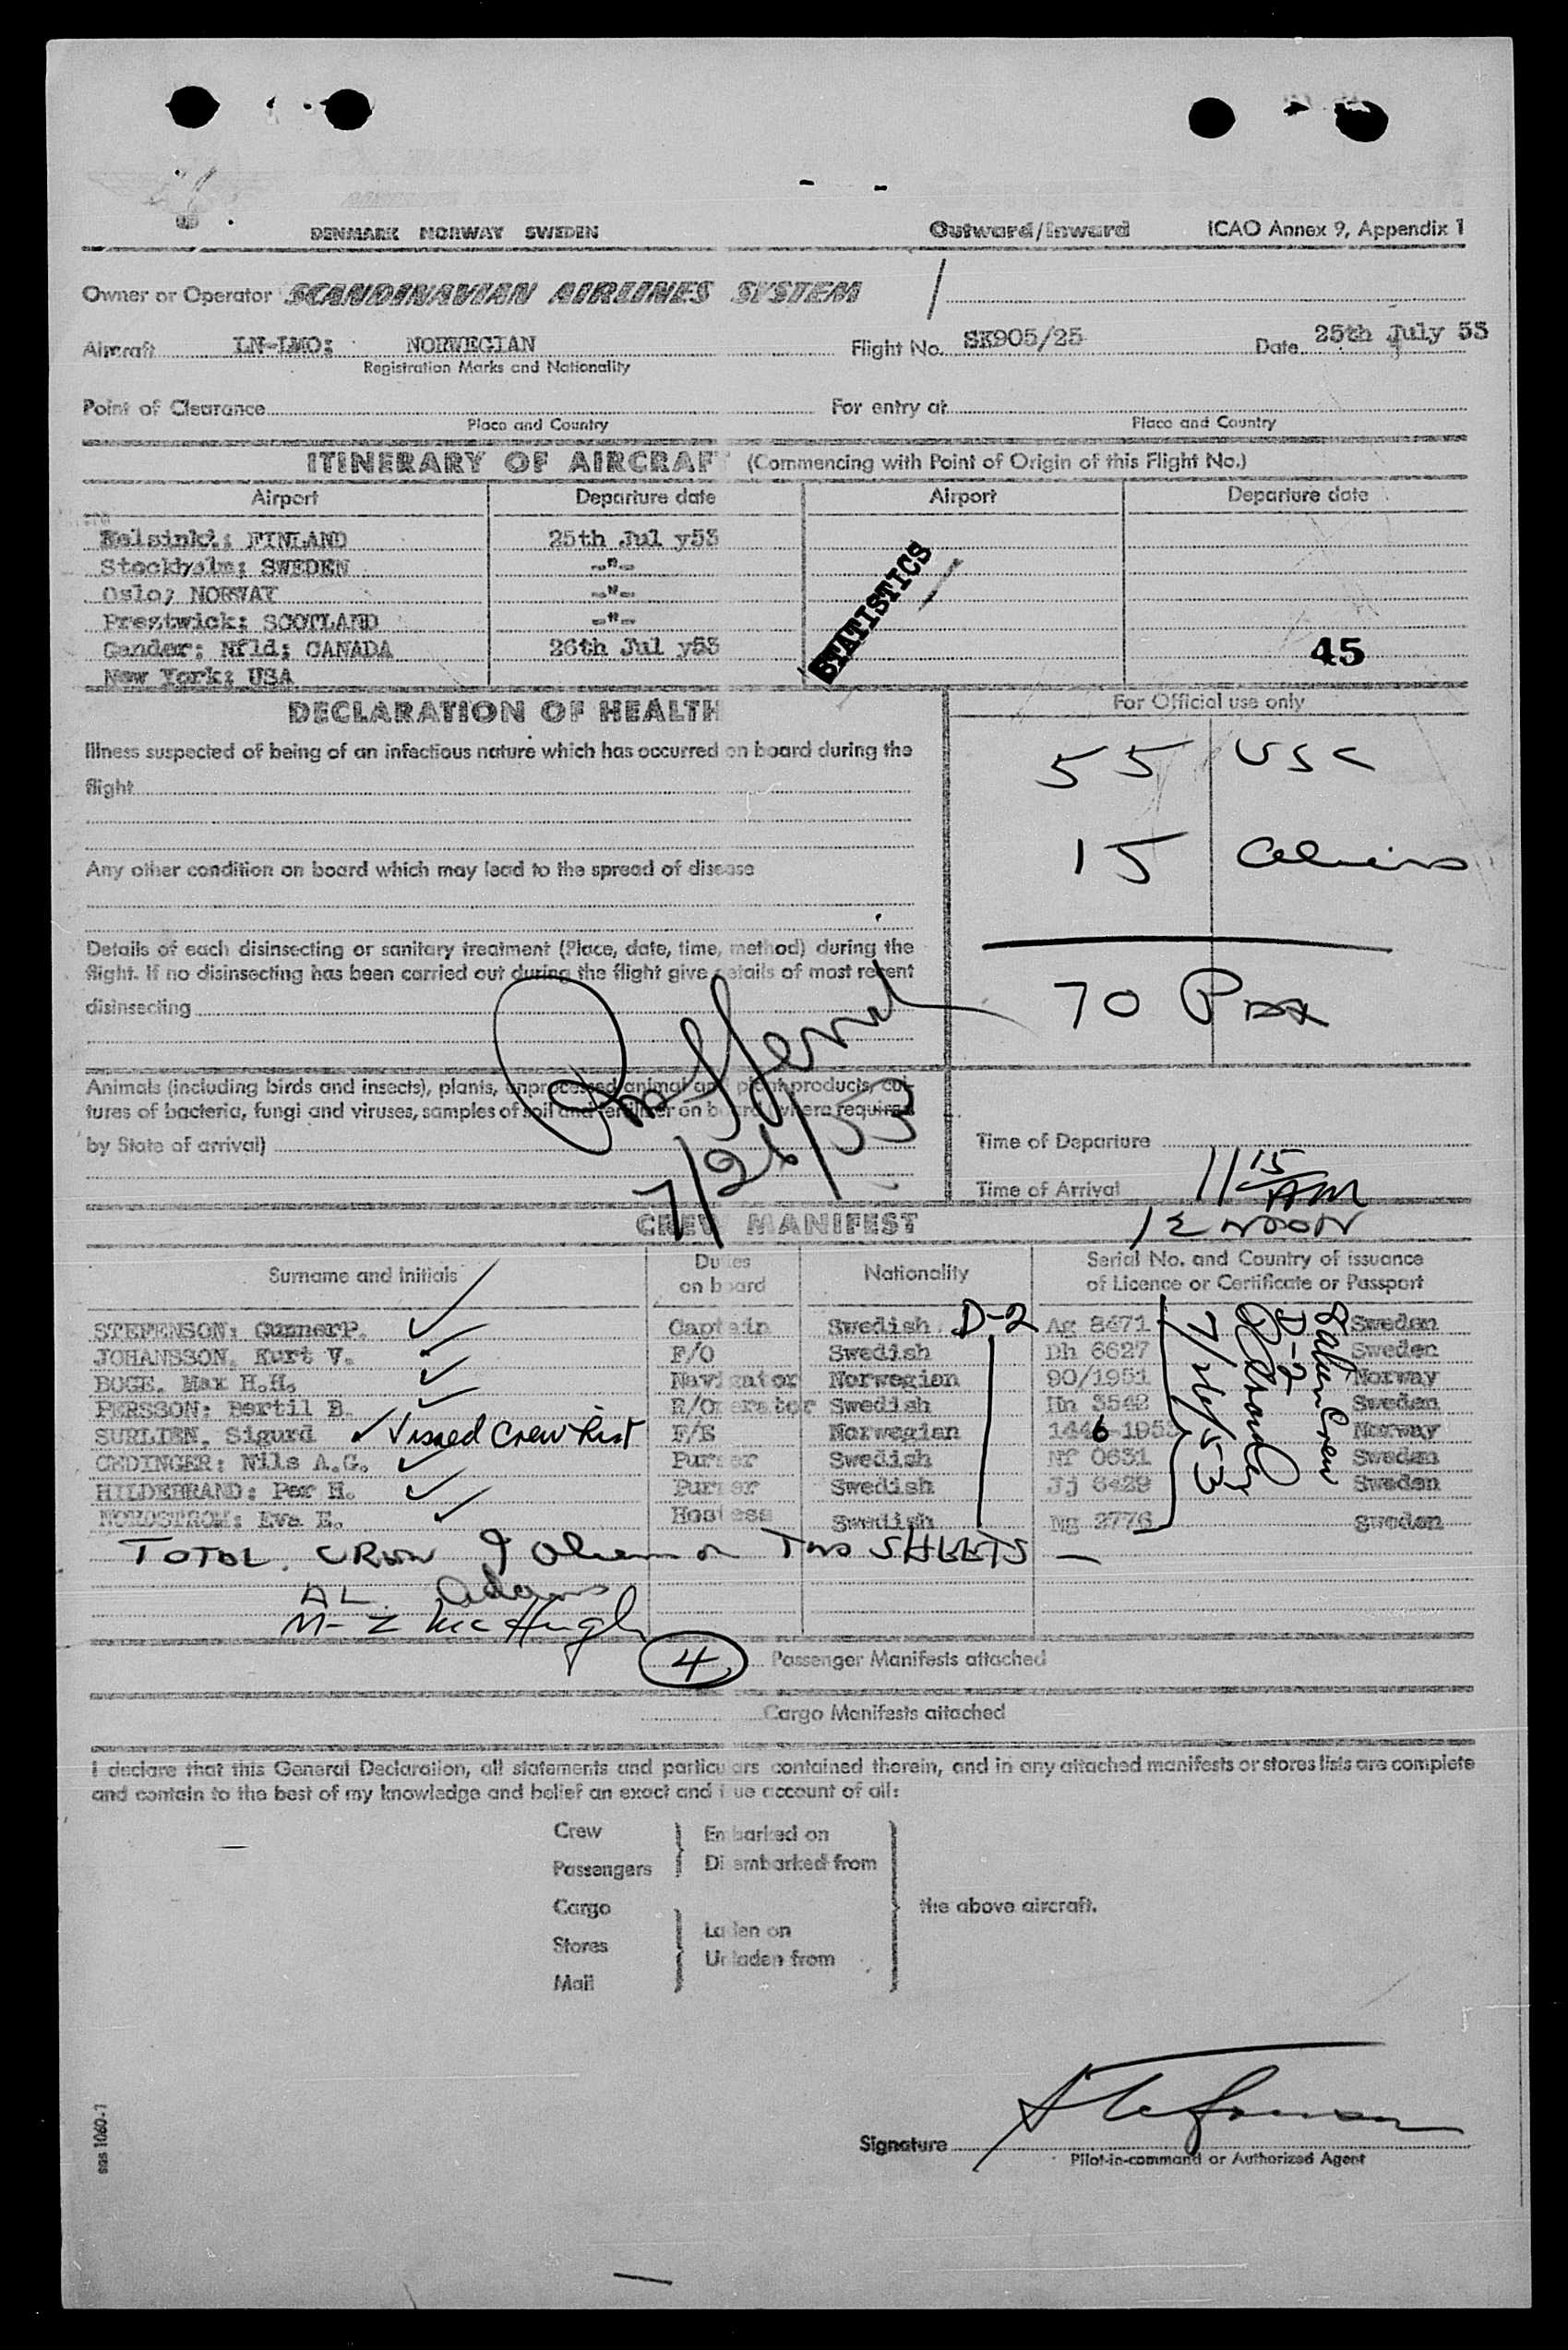 DENMARK NORWAY SWEDEN
Outward/Inward
ICAO Annex 9, Appendix 1
Owner or Operator SCANDINAVIAN AIRLINES SYSTEM
Aircraft LN-LMO; NORWEGIAN
Registration Marks and Nationality
Flight No. SK905/25
Date 25th July 53
Point of Clearance
Place and Country
For entry at
Place and Country
ITINERARY OF AIRCRAF (Commencing with Point of Origin of this Flight No.)
Airport Departure date Airport Departure date
Helsinki; FINLAND 25th Jul y53
Stockholm; SWEDEN -"-
Oslo; NORWAY -"-
Prestwick; SCOTLAND -"-
Gander; Nfld; CANADA 26th Jul y53
New York; USA
STATISTICS
45
DECLARATION OF HEALTH
For Official use only
Illness suspected of being of an infectious nature which has occurred on board during the
flight
55 USC
15 Aliens
70 Pax
Any other condition on board which may lead to the spread of disease
Details of each disinsecting or sanitary treatment (Place, date, time, method) during the
flight. If no disinsecting has been carried out during the flight give details of most recent
disinsecting
Animals (including birds and insects), plants, unprocessed animal and plant products, cul-
tures of bacteria, fungi and viruses, samples of soil and fertilizer on board (where required
by State of arrival)
7/26/53
Time of Departure
Time of Arrival 11 15 AM
12 NOON
CREW MANIFEST
Surname and initials
Duties on board
Nationality
Serial No. and Country of issuance
of Licence or Certificate or Passport
STEFENSON; GunnerP. Captain Swedish D-2 Ag 8471 Sweden
JOHANSSON. Kurt V. F/O Swedish Dh 6627 Sweden
BOGE. Max H.H. Navigator Norwegian 90/1951 Norway
PERSSON; Bertil B. R/Operator Swedish Hn 3542 Sweden
SURLIEN. Sigurd Visaed Crew List F/E Norwegian 1446-1953 Norway
OMDINGER; Nils A.G. Purser Swedish Nf 0631 Sweden
HILDEBRAND; Per H. Purser Swedish Jj 6429 Sweden
NORDSTROM; Eva E. Hostess Swedish Mg 2776 Sweden
8 Alien Crew
D-2
7/26/53
TOTAL CREW 9 Aliens on Two SHEETS —
AL Adams
M-Z McHugh
4 Passenger Manifests attached
Cargo Manifests attached
I declare that this General Declaration, all statements and particulars contained therein, and in any attached manifests or stores lists are complete
and contain to the best of my knowledge and belief an exact and true account of all:
Crew
Passengers
Embarked on
Disembarked from
Cargo
Stores
Mail
Laden on
Unladen from
the above aircraft.
Signature
Pilot-in-command or Authorized Agent
sas 1060-1